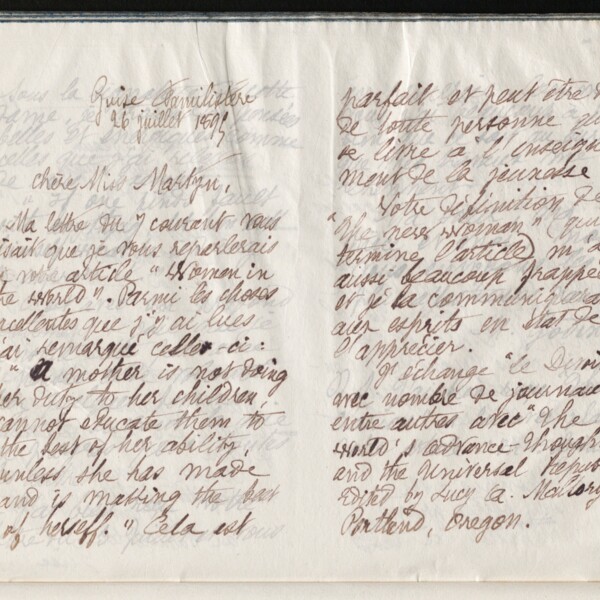 Guise Familistère
26 juillet 1895
chère Miss Martyn,
Ma lettre du 7 courant vous
disait que je vous reparlerais
de votre article "Woman in
the World". Parmi les choses
excellentes que j'y ai lues
j'ai remarqué celle-ci :
"A mother is not doing
her duty to her children,
cannot educate them to
the best of her ability,
unless she has made
and is making the best
of herself." Cela est
parfait et peut être
de toute personne qui
se livre à l'enseigne
ment de la jeunesse
Votre définition de
"The new woman" (qui
termine l'article) m'a
aussi beaucoup frappée
et je la communiquerai
aux esprits en état de
l'apprécier.
J'échange "le Devoir
avec nombre de journaux
entre autres avec "The
World's advance-thought
and the Universal Republic
Edited by Lucy A. Mallory
Portland, Oregon.